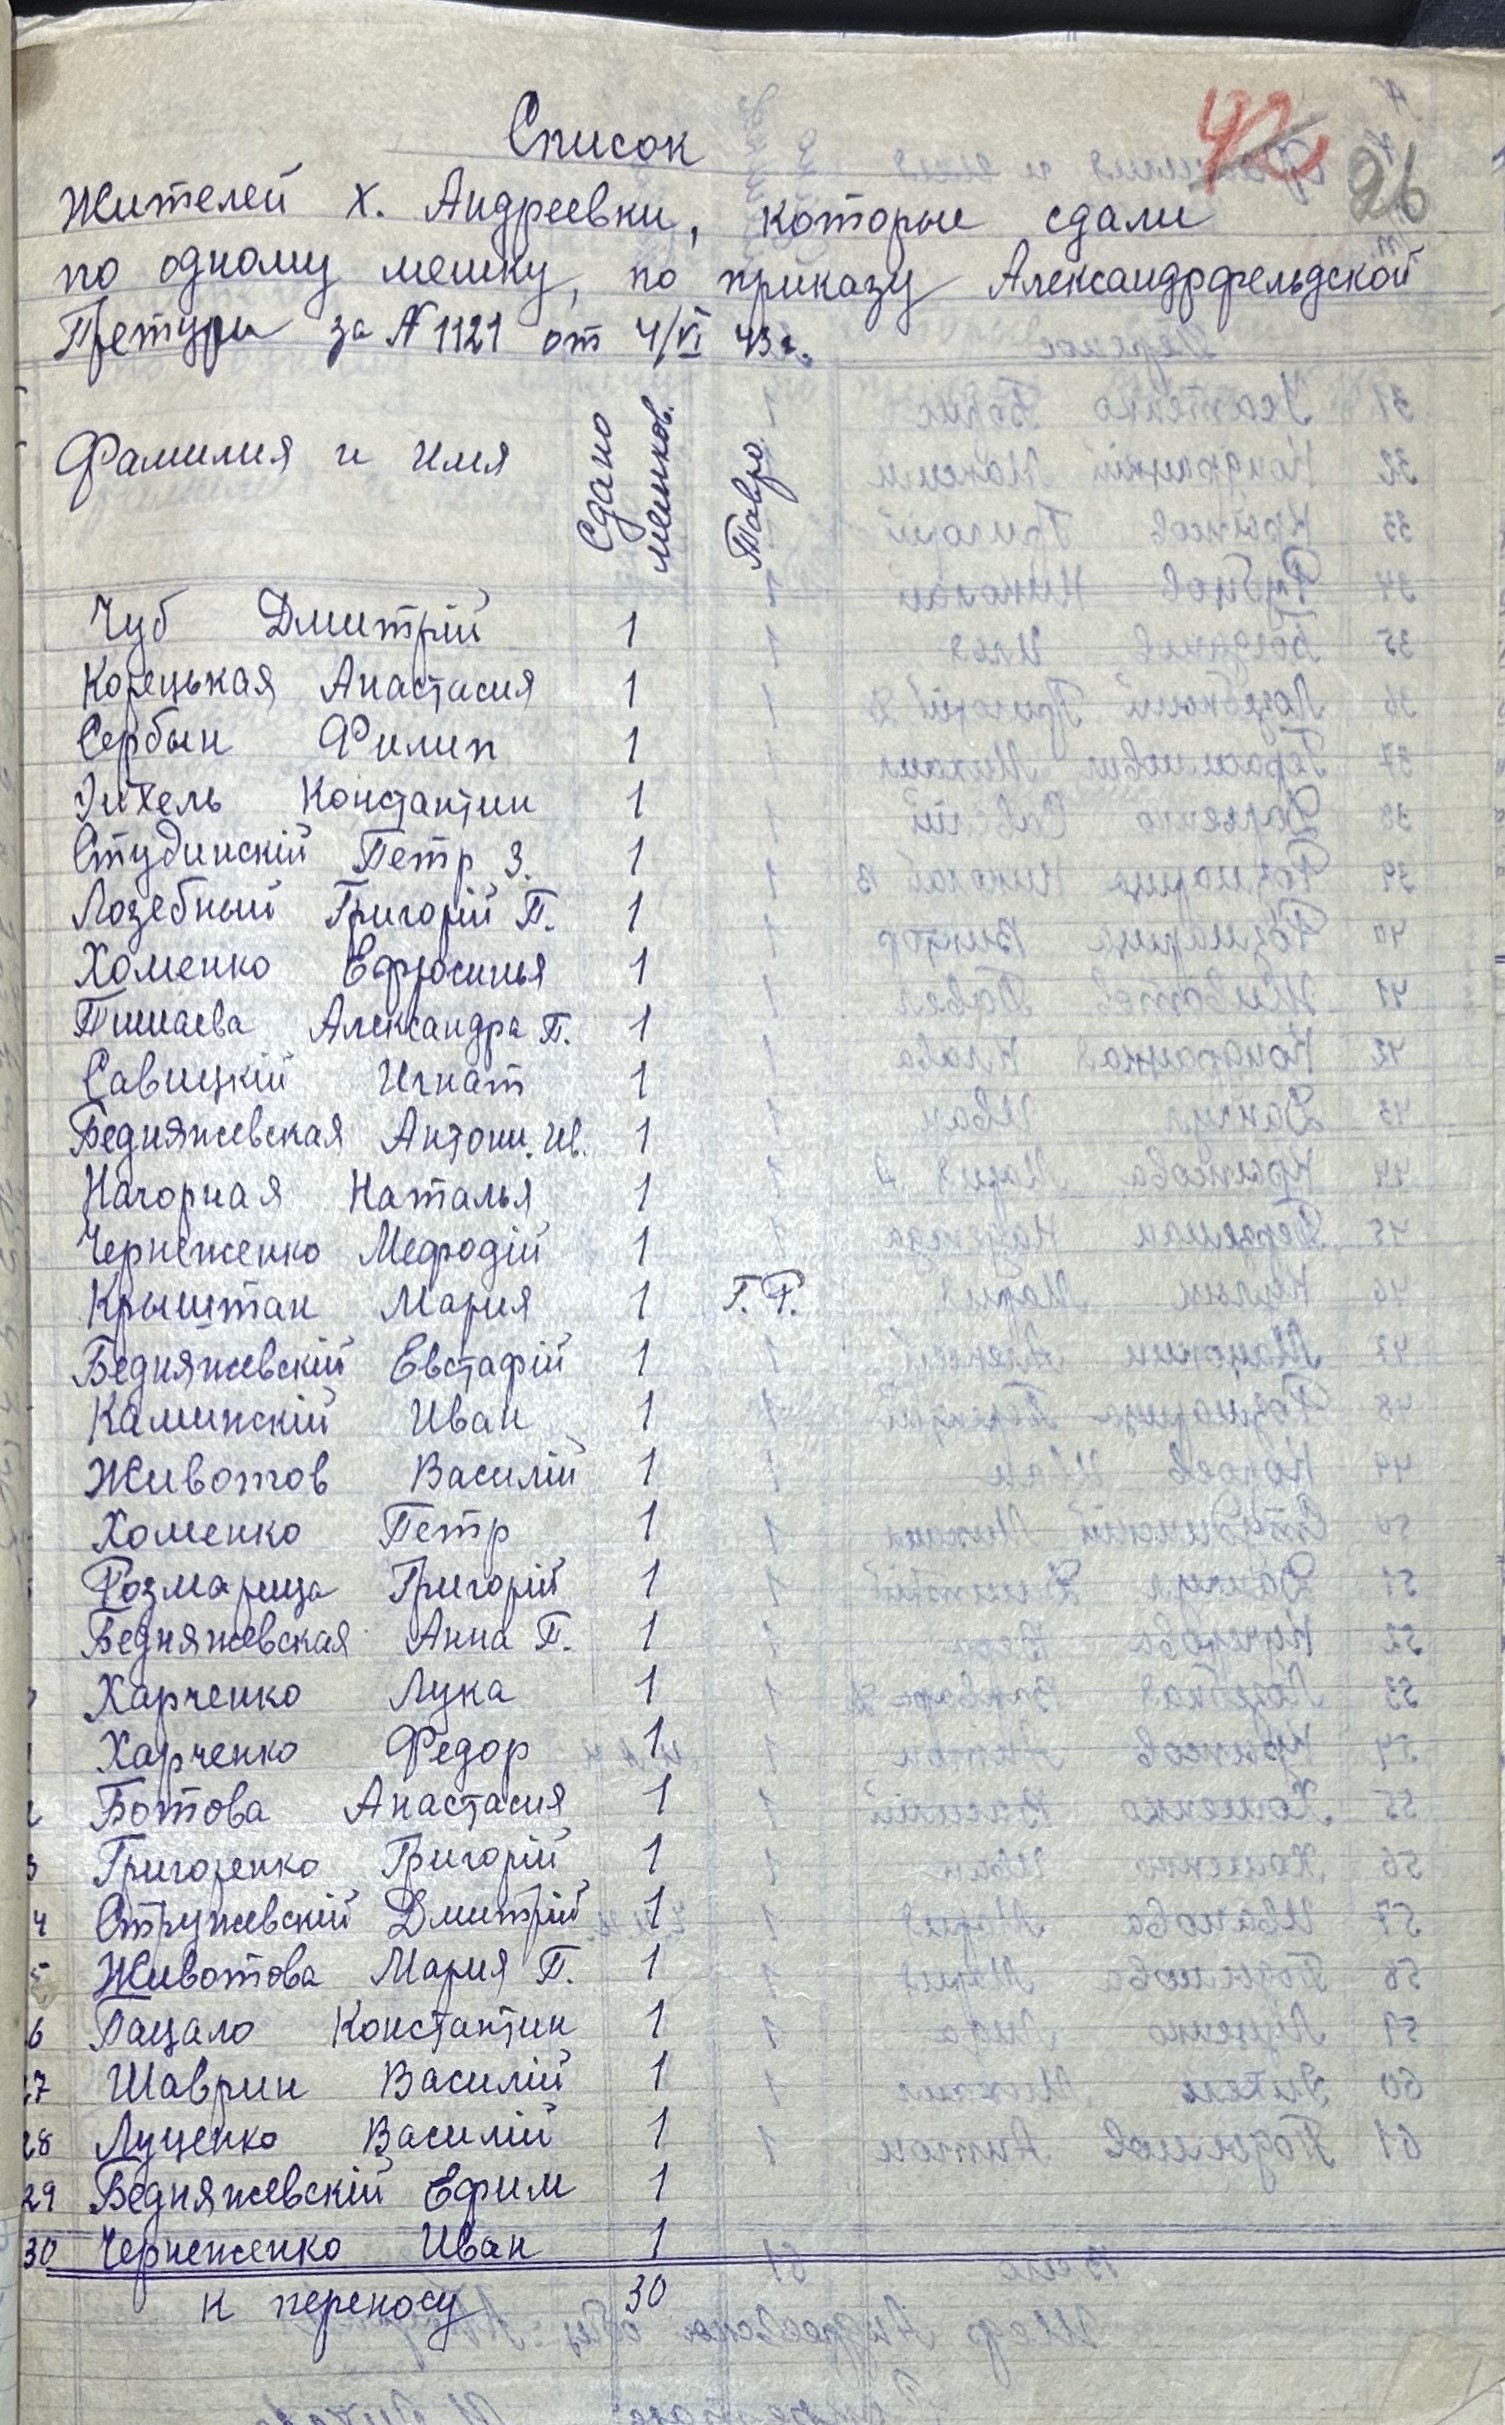 42
26
Список
Жителей х. Андреевки, которые сдали
по одному мешку, по приказу Александрфельдской
Претуры за № 1121 от 4/VI 43 г.
Фамилия и имя Сдано мешков. Тавро
Чуб Дмитрій 1
Корецькая Анастасия 1
Сербын Филип 1
Эйхель Константин 1
Студинскій Петр З. 1
Лозебный Григорій П. 1
Хоменко Ефросинья 1
Александра П. 1
Савицкій Игнат 1
Бедняжевская Антони. Ив. 1
Нагорная Наталья 1
Чернеженко Мефодій 1
Крыштан Мария 1 Г. Р.
Бедняжевскій Евстафій 1
Каминскій Иван 1
Животов Василій 1
Хоменко Петр 1
Розмарица Григорій 1
Бедняжевская Анна П. 1
Харченко Лука 1
Харченко Федор 1
Ботова Анастасия 1
3 Григоренко Григорій 1
4 Стружевскій Дмитрій 1
5 Животова Мария П. 1
6 Пацало Константин 1
27 Шаврин Василій 1
28 Луценко Василій 1
29 Бедняжевскій Ефим 1
30 Чернеженко Иван 1
к переносу 30